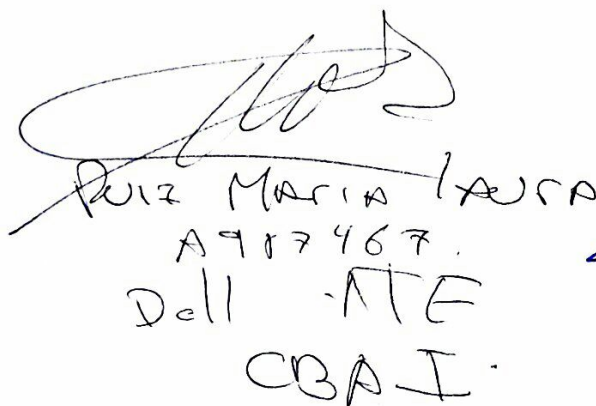 Ruiz Maria Laura
A987467.
Dell ATE
CBA I.